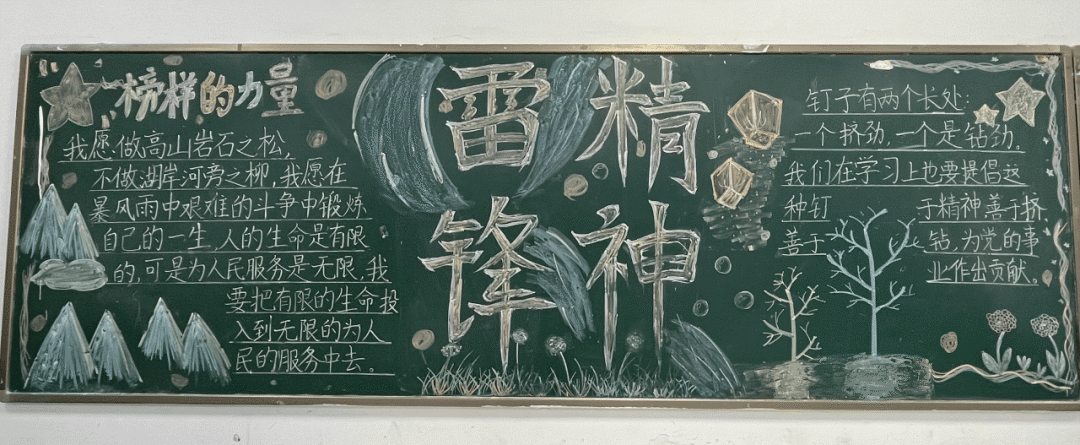 榜样的力量
我愿做高山岩石之松，
不做湖岸河旁之柳，我愿在
暴风雨中艰难的斗争中锻炼
自己的一生，人的生命是有限
的，可是为人民服务是无限，我
要把有限的生命投
入到无限的为人
民的服务中去。
雷锋
精神
钉子有两个长处：
一个挤劲，一个是钻劲。
我们在学习上也要提倡这
种钉 于精神善于挤
善于 钻，为党的事
业作出贡献。